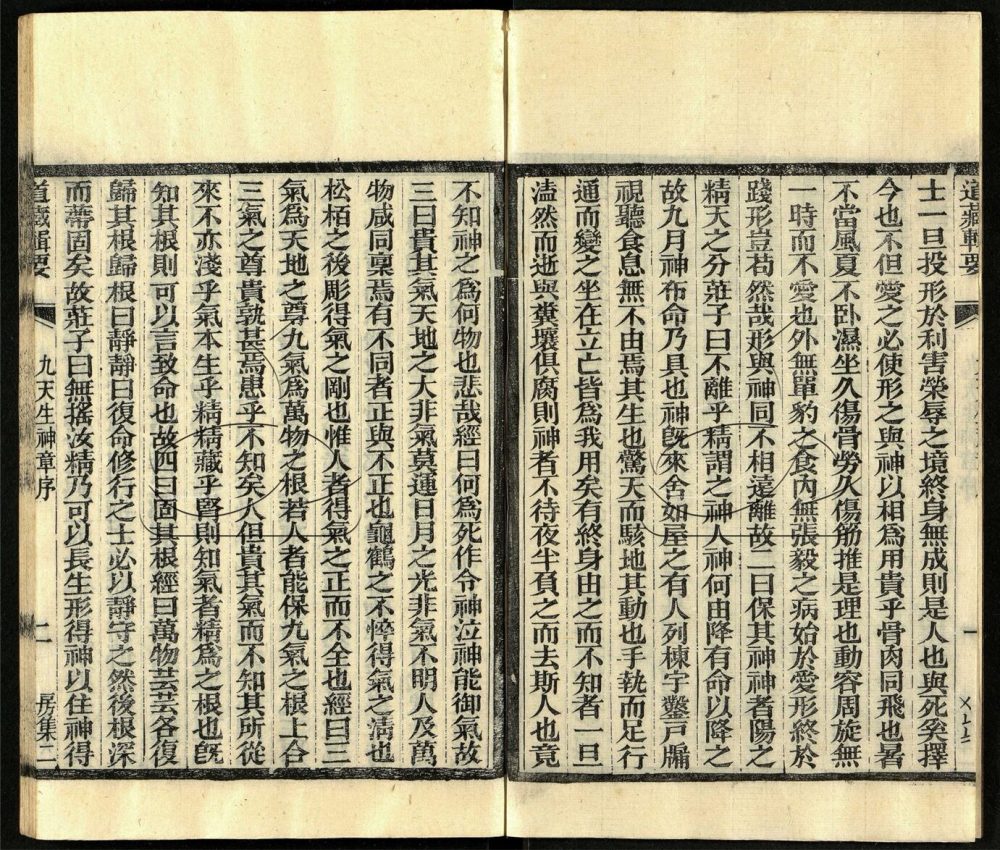 道藏輯要
一
士一旦投形於利害榮辱之境終身無成則是人也與死奚擇
今也不但愛之必使形之與神以相爲用貴乎骨肉同飛也暑
不當風夏不卧濕坐久傷骨勞久傷筋推是理也動容周旋無
一時而不愛也外無單豹之食內無張毅之病始於愛形終於
踐形豈苟然哉形與神同不相遠離故二曰保其神神者陽之
精天之分莊子曰不離乎精謂之神人神何由降有命以降之
故九月神布命乃具也神旣來舍如屋之有人列棟宇鑿戸牖
視聽食息無不由焉其生也驚天而駭地其動也手執而足行
通而變之坐在立亡皆爲我用矣有終身由之而不知者一旦
溘然而逝與糞壤俱腐則神者不待夜半負之而去斯人也竟
不知神之爲何物也悲哉經曰何爲死作令神泣神能御氣故
三曰貴其氣天地之大非氣莫運日月之光非氣不明人及萬
物咸同稟焉有不同者正與不正也龜鶴之不悴得氣之淸也
松栢之後彫得氣之剛也惟人者得氣之正而不全也經曰三
氣爲天地之尊九氣爲萬物之根若人者能保九氣之根上合
三氣之尊貴孰甚焉患乎不知矣人但貴其氣而不知其所從
來不亦淺乎氣本生乎精精藏乎腎則知氣者精爲之根也旣
知其根則可以言致命也故四曰固其根經曰萬物芸芸各復
歸其根歸根曰靜靜曰復命修行之士必以靜守之然後根深
而蔕固矣故莊子曰無搖汝精乃可以長生形得神以住神得
道藏輯要 九天生神章序 二 房集二